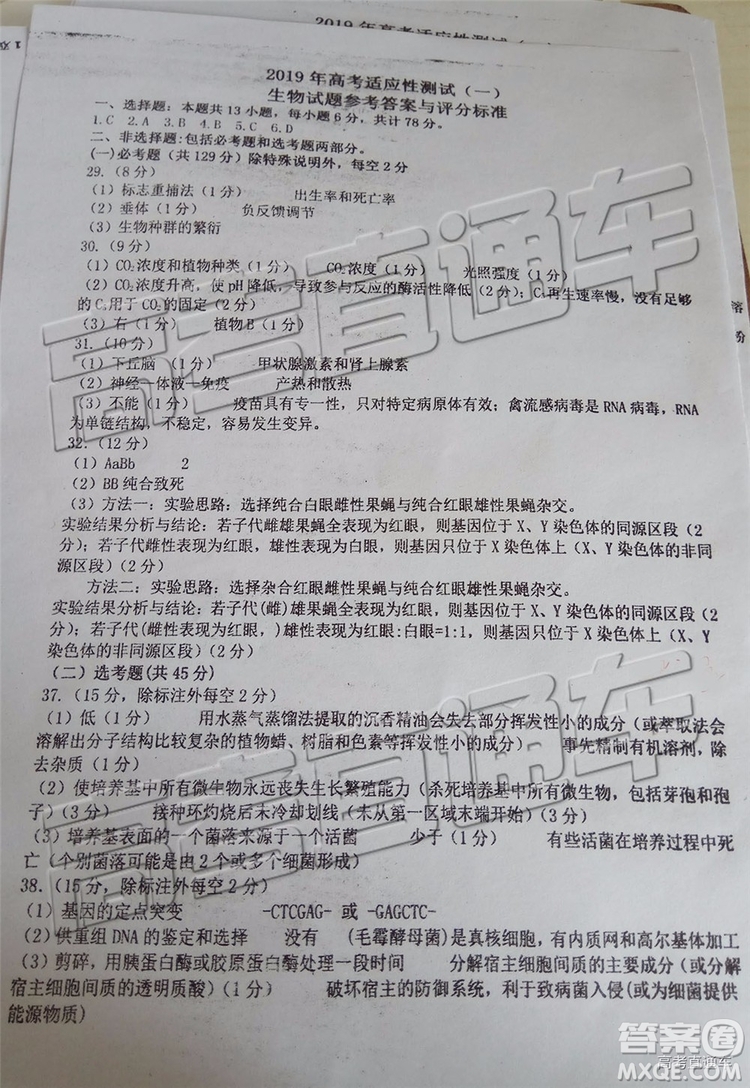 2019年高考适应性测试(
2019年高考适应性测试(一)
生物试题参考答案与评分标准
一、选择题：本题共13小题，每小题6分，共计78分。
1.C 2.A 3.B 4.B 5.C 6.D
二、非选择题:包括必考题和选考题两部分。
(一)必考题（共129分）除特殊说明外，每空2分
29.（8分）
（1）标志重捕法（1分） 出生率和死亡率
（2）垂体（1分） 负反馈调节
（3）生物种群的繁衍
30.（9分）
（1）CO₂浓度和植物种类（1分） CO₂浓度（1分） 光照强度（1分）
（2）CO₂浓度升高，使pH降低，导致参与反应的酶活性降低（2分）；C₅再生速率慢，没有足够
的C₅用于CO₂的固定（2分）
（3）右（1分） 植物B（1分）
31.（10分）
（1）下丘脑（1分） 甲状腺激素和肾上腺素
（2）神经—体液—免疫 产热和散热
（3）不能（1分） 疫苗具有专一性，只对特定病原体有效；禽流感病毒是RNA病毒，RNA
为单链结构，不稳定，容易发生变异。
32.（12分）
（1）AaBb 2
（2）BB纯合致死
（3）方法一：实验思路：选择纯合白眼雌性果蝇与纯合红眼雄性果蝇杂交。
实验结果分析与结论：若子代雌雄果蝇全表现为红眼，则基因位于X、Y染色体的同源区段（2
分）；若子代雌性表现为红眼，雄性表现为白眼，则基因只位于X染色体上（X、Y染色体的非同
源区段）（2分）
方法二：实验思路：选择杂合红眼雌性果蝇与纯合红眼雄性果蝇杂交。
实验结果分析与结论：若子代(雌)雄果蝇全表现为红眼，则基因位于X、Y染色体的同源区段（2
分）；若子代(雌性表现为红眼，)雄性表现为红眼:白眼=1:1，则基因只位于X染色体上（X、Y
染色体的非同源区段）（2分）
（二）选考题(共45分)
37.（15分，除标注外每空2分）
（1）低（1分） 用水蒸气蒸馏法提取的沉香精油会失去部分挥发性小的成分（或萃取法会
溶解出分子结构比较复杂的植物蜡、树脂和色素等挥发性小的成分） 事先精制有机溶剂，除
去杂质（1分）
（2）使培养基中所有微生物永远丧失生长繁殖能力（杀死培养基中所有微生物，包括芽孢和孢
子）（3分） 接种环灼烧后未冷却划线（未从第一区域末端开始）（3分）
（3）培养基表面的一个菌落来源于一个活菌 少于（1分） 有些活菌在培养过程中死
亡（个别菌落可能是由2个或多个细菌形成）
38.（15分，除标注外每空2分）
（1）基因的定点突变 -CTCGAG- 或 -GAGCTC-
（2）供重组DNA的鉴定和选择 没有 （毛霉酵母菌）是真核细胞，有内质网和高尔基体加工
（3）剪碎，用胰蛋白酶或胶原蛋白酶处理一段时间 分解宿主细胞间质的主要成分（或分解
宿主细胞间质的透明质酸）（1分） 破坏宿主的防御系统，利于致病菌入侵(或为细菌提供
能源物质)
高考直通车
答案圈
高考直通车
MXQE.COM